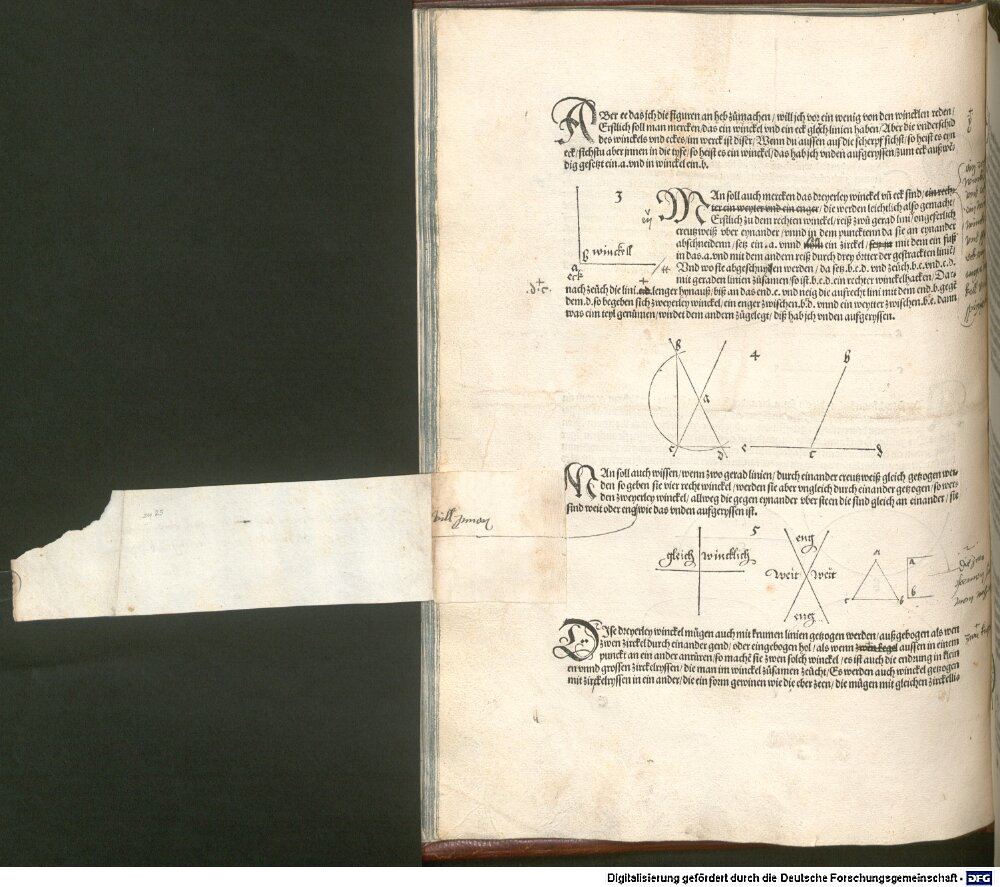 ABer ee das jch die figuren an heb zůmachen / will jch vor ein wenig von den wincklen reden /
Erstlich soll man mercken / das ein winckel vnd ein eck gleich linien haben / Aber die vnderschid
des winckels vnd eckes / im werck ist diser / Wenn du aussen auf die scherpf sichst / so heist es eyn
eck / sichstu aber jnnen in die tyfe / so heist es ein winckel / das hab jch vnden aufgeryssen / zum eck außwē
dig gesetzt ein .a. vnd in winckel ein .b.
3
b winckell
a
eck
MAn soll auch mercken das dreyerley winckel vñ eck sind / ein rech-
ter ein weyter vnd ein enger / die werden leichtlich also gemacht /
Erstlich zu dem rechten winckel / reiß zwů gerad lini / ongeferlich
creutzweiß vber eynander / vnnd in dem puncktenn da sie an eynander
abschneidenn / setz ein .a. vnnd ein zirckel / mit dem ein fuß
in das .a. vnd mit dem andern reiß durch drey örtter der gestrackten liniē /
Vnd wo sie abgeschnyten werden / da setz .b.c.d. vnd zeůch .b.c. vnd .c.d.
mit geraden linien zůsamen / so ist .b.c.d. ein rechter winckelhacken / Dar-
nach zeůch die lini .cd. lenger hynauß / biß an das end .e. vnd neig die aufrecht lini mit dem end .b. gegē
dem .d. so begeben sich zweyerley winckel / ein enger zwischen .b.d. vnnd ein weytter zwischen .b.e. dann
was eim teyl genůmen / wirdet dem andern zůgelegt / diß hab jch vnden aufgeryssen.
4
b
a
c
d
b
e
c
d
MAn soll auch wissen / wenn zwo gerad linien / durch einander creutzweiß gleich gezogen wer-
den so geben sie vier recht winckel / werden sie aber vngleich durch einander gezogen / so wer-
den zweyerley winckel / allweg die gegen eynander vber steen die sind gleich an einander / sie
sind weit oder eng / wie das vnden aufgeryssen ist.
5
gleich wincklich
eng
weit weit
eng
a
c b
a
b
DIse dreyerley winckel mügen auch mit krumen linien gezogen werden / außgebogen als wen
zwen zirckel durch einander gend / oder eingebogen hol / als wenn zwen kegel aussen in einem
punckt an ein ander anrüren / so machē sie zwen solch winckel / es ist auch die endrung in klein
en vnnd grossen zirckelryssen / die man im winckel zůsamen zeůcht / Es werden auch winckel gezogen
mit zirckelryssen in ein ander / die ein form gewinen wie die eber zeen / die mügen mit gleichen zirckellis
zu 25
Digitalisierung gefördert durch die Deutsche Forschungsgemeinschaft - DFG